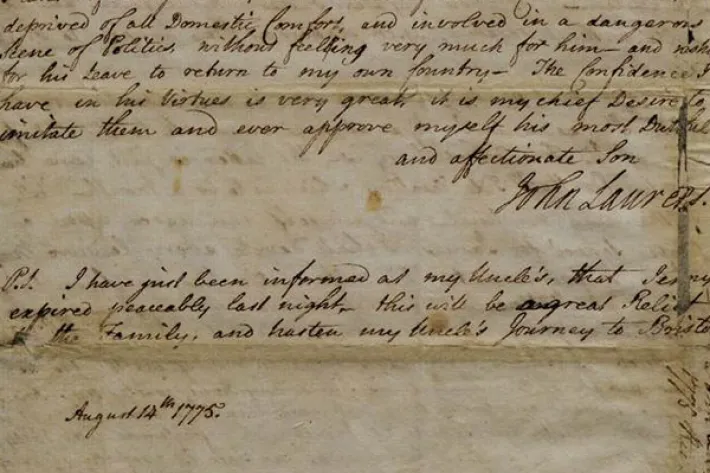 deprived of all Domestic Comfort, and involved in a dangerous
Scene of Politics without feeling very much for him – and
for his Leave to return to my own Country – The Confidence I
have in his Virtues is very great, it is my chief Desire to
imitate them and ever approve myself his most Dutiful
and affectionate Son
John Laurens.
P.S. I have just been informed at my Uncle's, that Jemmy
expired peaceably last night, this will be a great Relief
the Family, and hasten my Uncle's Journey to Bristo
August 14th 1775.